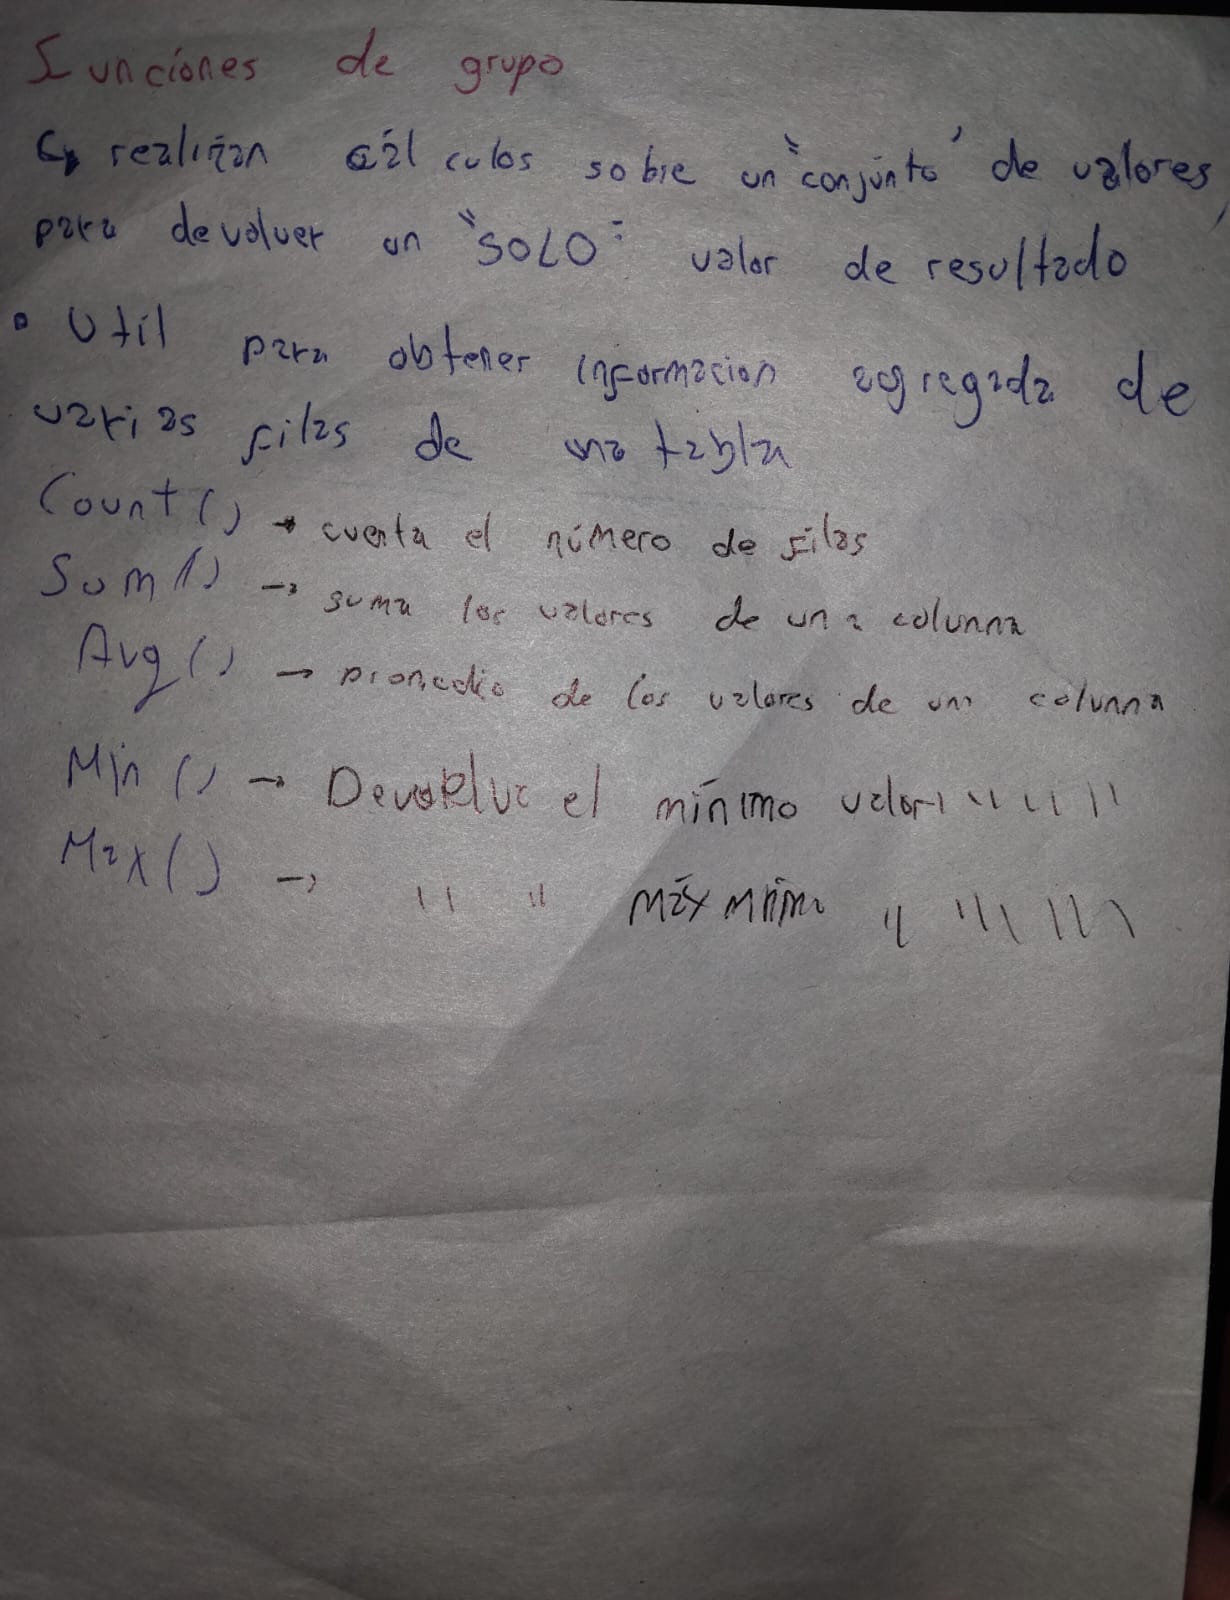 Funciones de grupo
↳ realizan cálculos sobre un "conjunto" de valores,
para devolver un "SOLO" valor de resultado
• Util para obtener información agregada de
varias filas de una tabla
Count () → cuenta el número de filas
Sum () → suma los valores de una columna
Avg () → promedio de los valores de una columna
Min () → Devuelve el mínimo valor " " " "
Max () → " " máximo " " " "